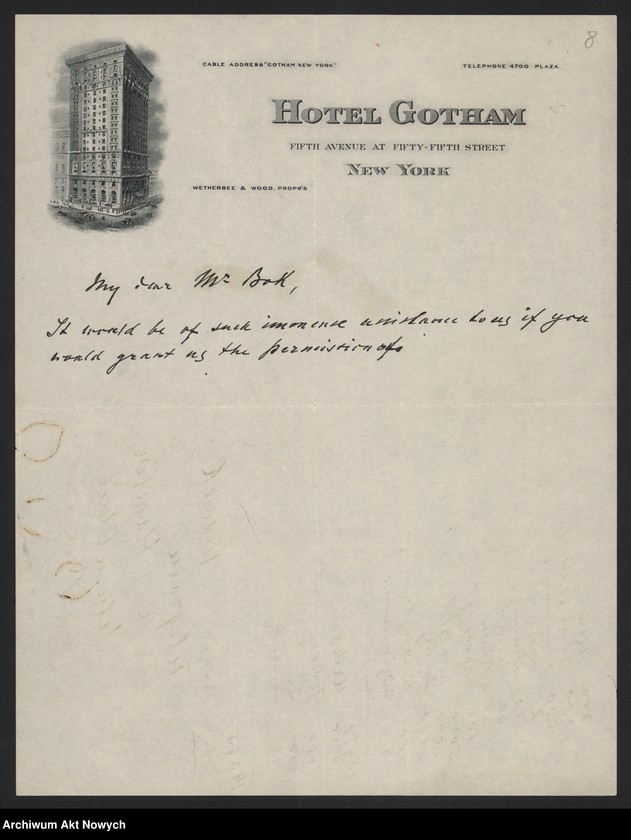 8
CABLE ADDRESS "GOTHAM NEW YORK"
TELEPHONE 4700 PLAZA.
HOTEL GOTHAM
FIFTH AVENUE AT FIFTY-FIFTH STREET
NEW YORK
WETHERBEE & WOOD, PROPR'S
My dear Mr Bok,
It would be of such immense assistance to us if you
would grant us the permission of
Archiwum Akt Nowych